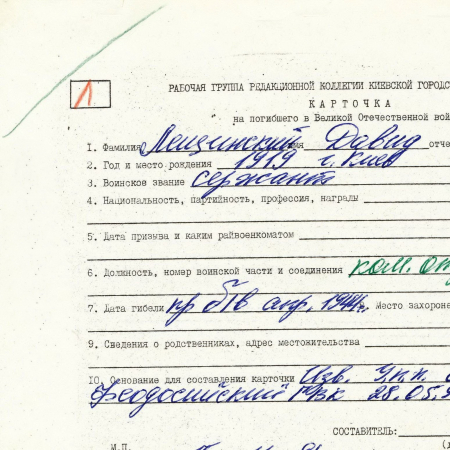 Л
РАБОЧАЯ ГРУППА РЕДАКЦИОННОЙ КОЛЛЕГИИ КИЕВСКОЙ ГОРОДС
КАРТОЧКА
на погибшего в Великой Отечественной вой
1. Фамилия Лещинский имя Давид отче
2. Год и место рождения 1919 г. Киев
3. Воинское звание сержант
4. Национальность, партийность, профессия, награды
5. Дата призыва и каким райвоенкоматом
6. Должность, номер воинской части и соединения ком. от
7. Дата гибели пр б/в апр. 1944г. Место захороне
9. Сведения о родственниках, адрес местожительства
10. Основание для составления карточки Изв.
Феодосийский РВК 28.05.
СОСТАВИТЕЛЬ:
М.П.